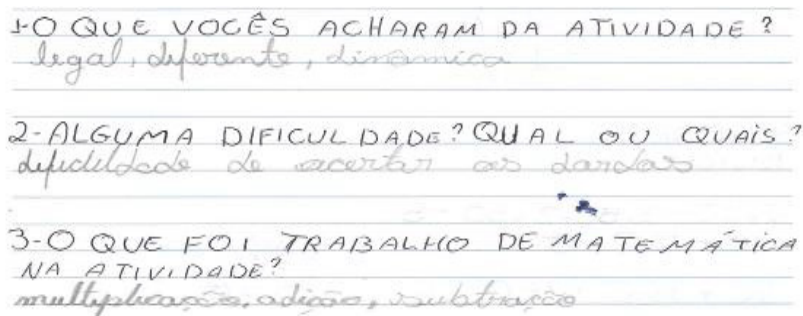 1-O QUE VOCÊS ACHARAM DA ATIVIDADE?
legal, diferente, dinamica
2-ALGUMA DIFICULDADE? QUAL OU QUAIS?
dificuldade de acertar os dardos
3-O QUE FOI TRABALHO DE MATEMÁTICA
NA ATIVIDADE?
multiplicação, adição, subtração